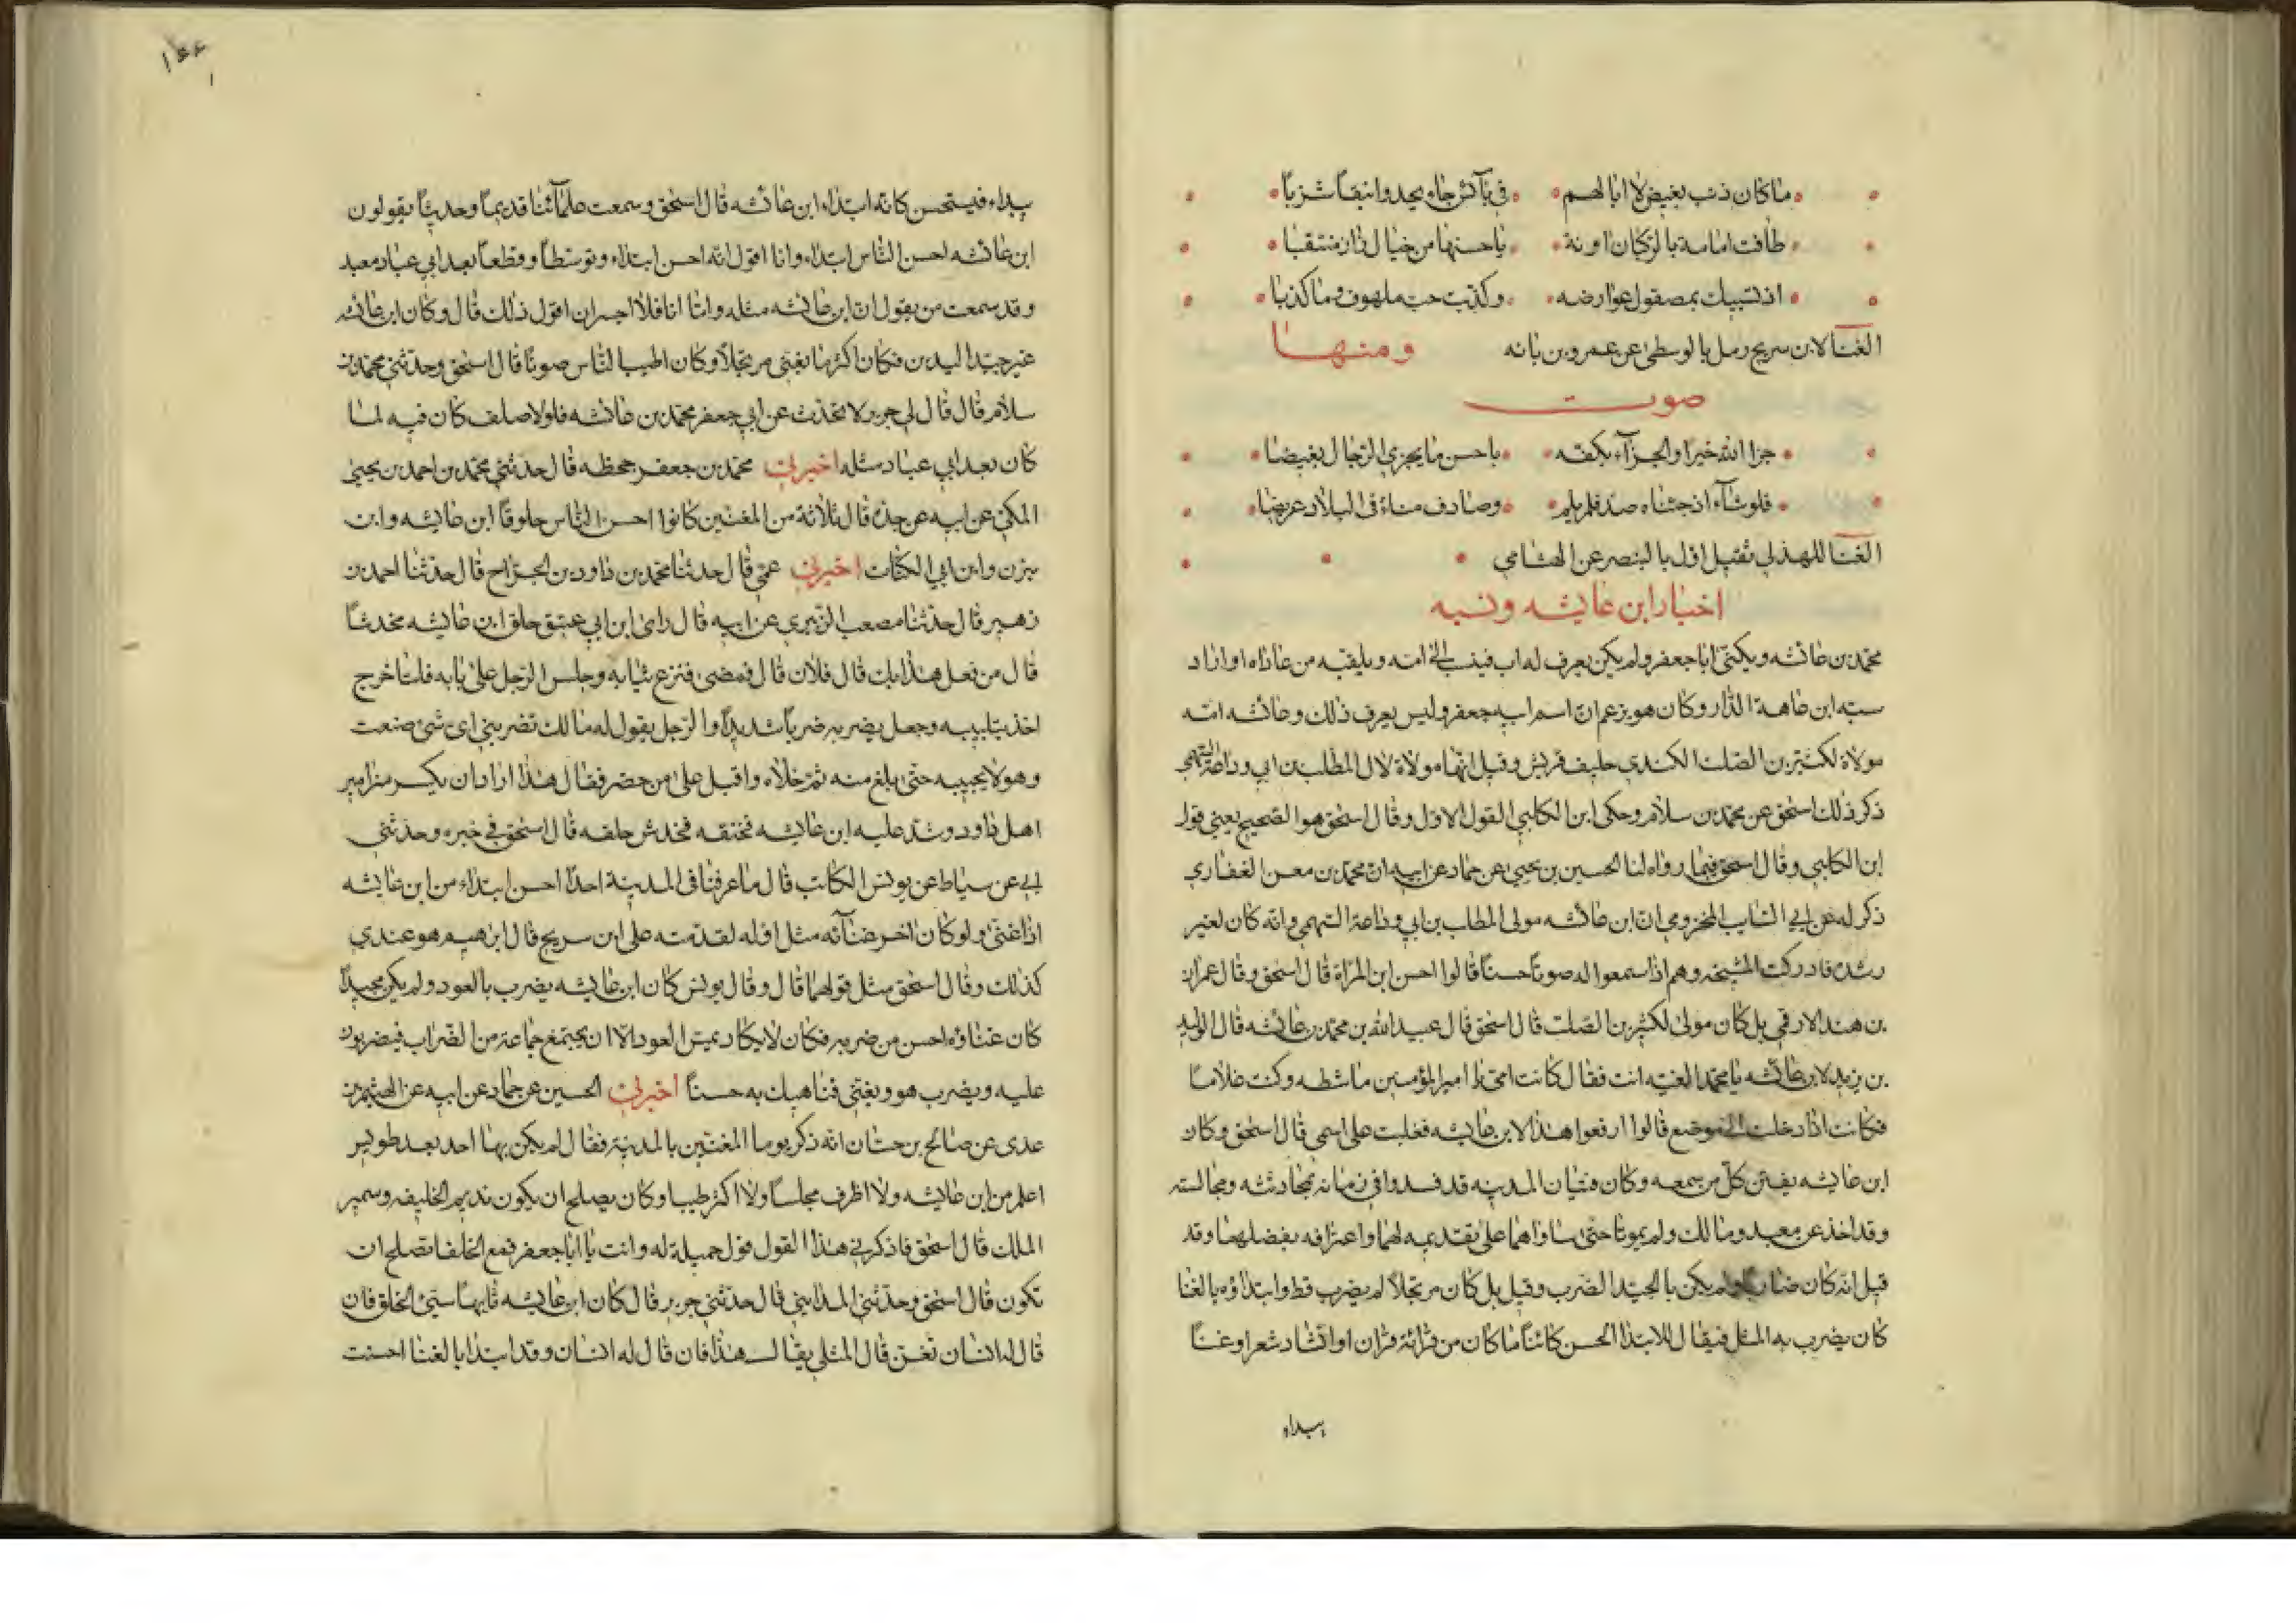 ما كان ذنب بغيض لا ابا لهم في بآئس جاء يحدو انيقاً شزباً
طافت امامة بالركبان اونة يا حسنها من خيال زار منتقبا
اذ تستبيك بمصقول عوارضه وكذبت حب ملهوف وما كذبا
الغنآ لابن سريج رمل بالوسطى عن عمرو بن بانه ومنهـا
صوت
جزا الله خيرا والجزآء بكفه باحسن ما يجزي الرجال بغيضا
فلو شآء اذ جئناه صد فلم يلم وصادف مناء في البلاد عريضا
الغنآ للهذلي ثقيل اول بالبنصر عن الهشامي
اخبار ابن عايشه ونسبه
محمد بن عائشه ويكنى ابا جعفر ولم يكن يعرف له اب فينسب الى امه ويلقبه من عاداه او اراد
سبه ابن عاهة الدار وكان هو يزعم ان اسم ابيه جعفر وليس يعرف ذلك وعائشه امه
مولاة لكثير بن الصلت الكندي حليف قريش وقيل انها مولاة لال المطلب بن ابي وداعة السهمي
ذكر ذلك اسحق عن محمد بن سلام وحكى ابن الكلبي القول الاول وقال اسحق هو الصحيح يعني قول
ابن الكلبي وقال اسحق فيما رواه لنا الحسين بن يحيى عن حماد عن ابيه ان محمد بن معن الغفاري
ذكر له عن ابي السايب المخزومي ان ابن عائشه مولى المطلب بن ابي وداعة السهمي وانه كان لغير
رشده فادركت المشيخه وهم اذا سمعوا له صوتاً حسناً قالوا احسن ابن المراة قال اسحق وقال عمران
بن هند الارقمي بل كان مولى لكثير بن الصلت قال اسحق قال عبيد الله بن محمد بن عائشه قال الوليد
بن يزيد لابن عائشه يا محمد الغيه انت فقال كانت امي يا امير المؤمنين ماشطه وكنت غلاما
فكانت اذا دخلت الى موضع قالوا ارفعوا هذا لابن عايشه فغلبت على اسمي قال اسحق وكان
ابن عايشه يفتن كل من سمعه وكان فتيان المدينه قد فسدوا في زمانه بمحادثته ومجالسته
وقد اخذ عن معبد ومالك ولم يموتا حتى ساواهما على تقديمه لهما واعترافه بفضلهما وقد
قيل انه كان ضاربا ولم يكن بالجيد الضرب وقيل بل كان مرتجلا لم يضرب قط وابتداؤه بالغنا
كان يضرب به المثل فيقال للابتدا الحسن كائناً ما كان من قرائة قران او انشاد شعر او غنآ
يبداه
يبداء فيستحسن كانه ابتداء ابن عائشه قال اسحق وسمعت علمآئنا قديماً وحديثاً يقولون
ابن عائشه احسن الناس ابتداء وانا اقول انه احسن ابتداء وتوسطاً وقطعاً بعد ابي عباد معبد
وقد سمعت من يقول ان ابن عائشه مثله واما انا فلا اجسر ان اقول ذلك قال وكان ابن عائشه
غير جيد اليدين فكان اكثر ما يغني مرتجلاً وكان اطيب الناس صوتاً قال اسحق وحدثني محمد بن
سلام قال قال لي جرير لا تخدث عن ابي جعفر محمد بن عائشه فلولا صلف كان فيه لما
كان بعد ابي عباد مثله اخبرني محمد بن جعفر جحظه قال حدثني محمد بن احمد بن يحيى
المكي عن ابيه عن جده قال ثلاثة من المغنين كانوا احسن الناس حلوقاً ابن عايشه وابن
بيزن وابن ابي الكنات اخبرني عمي قال حدثنا محمد بن داود بن الجراح قال حدثنا احمد بن
زهير قال حدثنا مصعب الزبيري عن ابيه قال راى ابن ابي عتيق حلق ابن عايشه مخدشاً
قال من فعل هذا بك قال فلان قال فمضى فنزع ثيابه وجلس الرجل على بابه فلما خرج
اخذ بتلبيبه وجعل يضربه ضرباً شديداً والرجل يقول له مالك تضربني اى شئ صنعت
وهو لا يجيبه حتى بلغ منه ثم خلاه واقبل على من حضر فقال هذا اراد ان يكسر مزامير
اهل داود وشد عليه ابن عايشه فخنقه فخدش حلقه قال اسحق في خبره وحدثني
ابي عن سياط عن يونس الكاتب قال ما عرفنا في المدينة احداً احسن ابتداء من ابن عايشه
اذا غنى ولو كان اخر غنآئه مثل اوله لقدمته على ابن سريج قال ابرهيم هو عندي
كذلك وقال اسحق مثل قولهما قال وقال يونس كان ابن عايشه يضرب بالعود ولم يكن مجيداً
كان غناؤه احسن من ضربه فكان لا يكاد يمس العود الا ان يجتمع جماعة من الضراب فيضربون
عليه ويضرب هو ويغني فناهيك به حسناً اخبرني الحسين عن حماد عن ابيه عن الهيثم بن
عدى عن صالح بن حسان انه ذكر يوما المغنين بالمدينة فقال لم يكن بها احد بعد طويس
اعلم من ابن عايشه ولا اظرف مجلساً ولا اكثر طيبا وكان يصلح ان يكون نديم الخليفه وسمير
الملك قال اسحق فاذكرني هذا القول قول جميلة له وانت يا ابا جعفر فمع الخلفا تصلح ان
تكون قال اسحق وحدثني المدايني قال حدثني جرير قال كان ابن عايشه تايهاً سيئ الخلق فان
قال له انسان تغن قال المثلي يقال هذا فان قال له انسان وقد ابتدا بالغنا احسنت